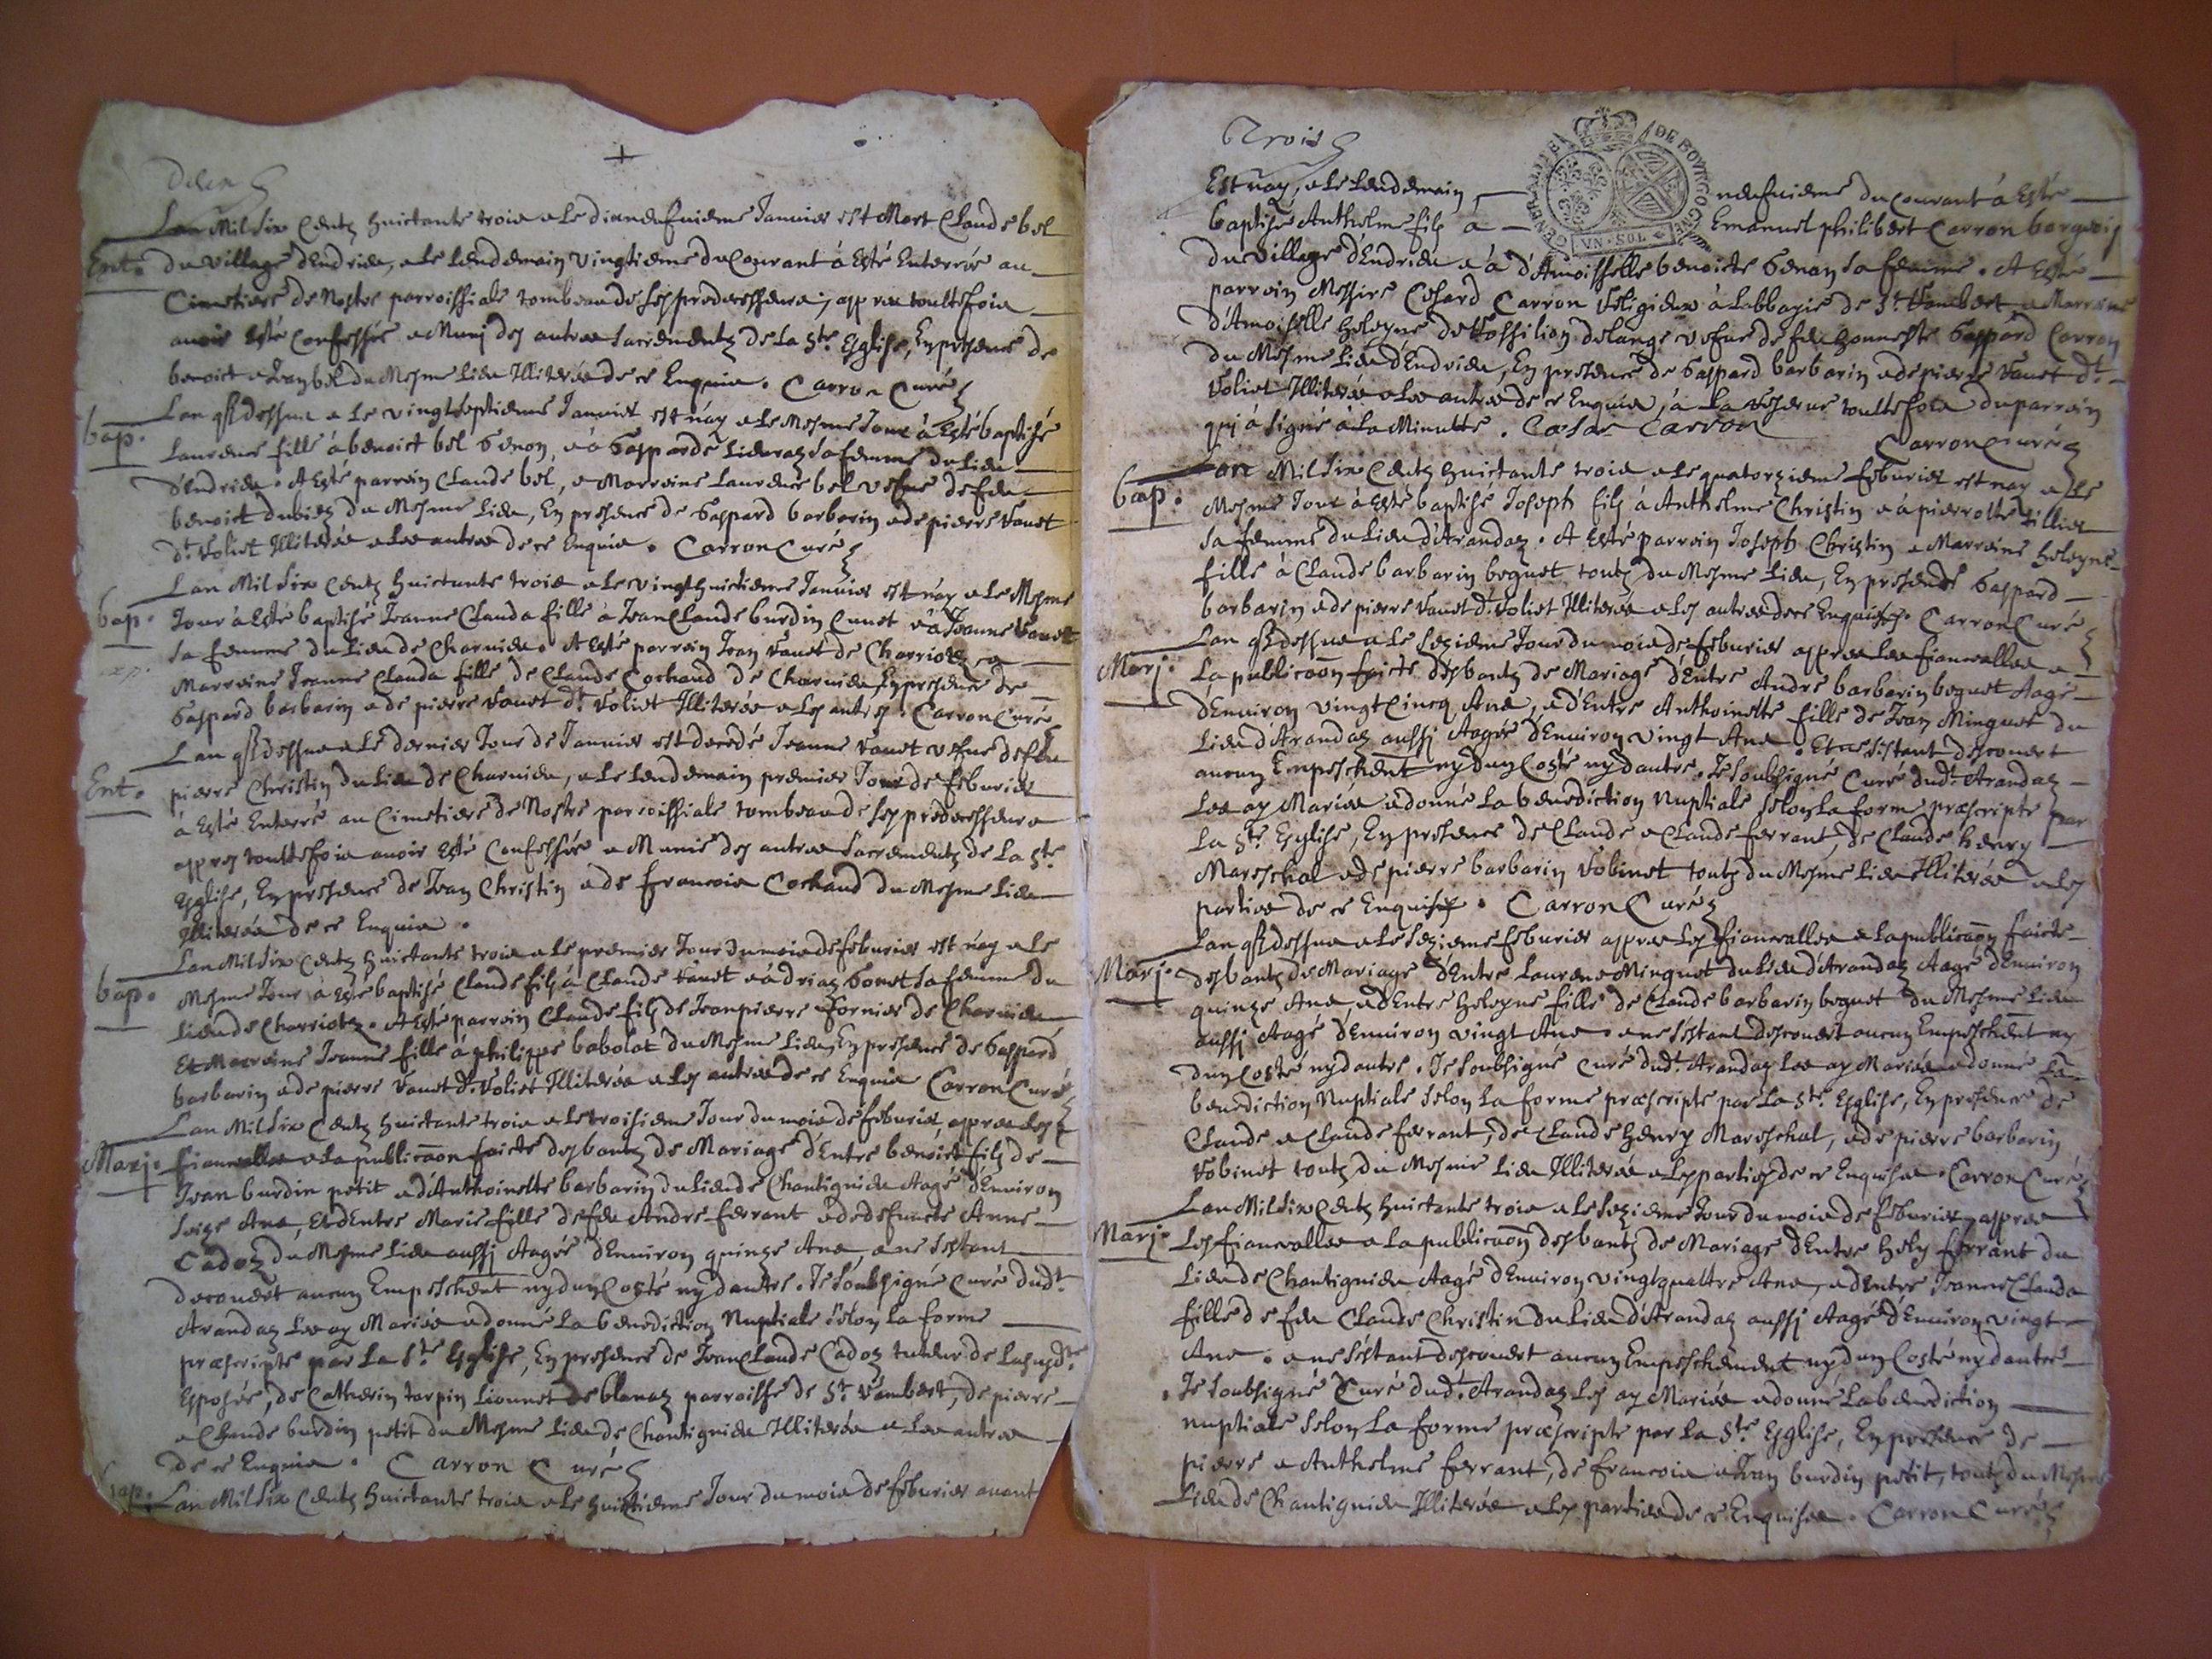 deux
Lan Mil Six Centz huictante trois & le dixneufuieme Januier est Mort Claude bel
Ent. du village dEndrieu, & le lendemain vingtieme du Courant à Esté Enterré au
Cimetiere de Nostre parroissiale tombeau de ses predecesseurs, appres touttefois
auoir Esté Confessé & Muni des autres Sacrementz de la Ste Esglise, En presence de
benoict & Jean bel du Mesme lieu Illiterés de ce Enquis. Carron Curé
bap. Lan q dessus & le vingtseptieme Januier est náy & le Mesme Jour à Esté baptisé
Laurence fille à benoict bel Genon, & à Gasparde lieuraz sa femme du lieu
dEndrieu. A Esté parrain Claude bel, & Marraine Laurence bel vefue de feu
benoict dubiez du Mesme lieu, En presence de Gaspard barbarin & de pierre Vauet
dt. Voliet Illiterés & les autres de ce Enquis. Carron Curé
bap. Lan Mil Six Centz huictante trois & le vingthuictieme Januier est náy & le Mesme
Jour à Esté baptisé Jeanne Clauda fille à Jean Claude burdin Cunet & à Jeanne Vauet
sa femme du lieu de Charuieu. A Esté parrain Jean Vauet de Charriotz &
Marraine Jeanne Clauda fille de Claude Cochaud de Charuieu En presence de
Gaspard barbarin & de pierre Vauet dt. Voliet Illiterés & les autres. Carron Curé
Lan q dessus & le dernier Jour de Januier est decedé Jeanne Vauet vefue de feu
Ent. pierre Christin du lieu de Charuieu, & le lendemain premier Jour de feburier
à Esté Enterré au Cimetiere de Nostre parroissiale tombeau de ses predecesseurs
appres touttefois auoir Esté Confessée & Munie des autres Sacrementz de la Ste
Esglise, En presence de Jean Christin & de francois Cochaud du Mesme lieu
Illiterés de ce Enquis.
Lan Mil Six Centz huictante trois & le premier Jour du mois de feburier est náy & le
bap. Mesme Jour à Esté baptisé Claude filz à Claude Vauet & à driaz Gonet sa femme du
lieu de Charriotz. A Esté parrain Claude filz de Jean pierre fornier de Charuieu
Et Marraine Jeanne fille à philippe babolat du Mesme lieu, En presence de Gaspard
barbarin & de pierre Vauet dt. Voliet Illiterés & les autres de ce Enquis Carron Curé
Lan Mil Six Centz huictante trois & le troisieme Jour du mois de feburier, appres les
Marj. fiancealles & la publicaõn faicte des bantz de Mariage dEntre benoict filz de
Jean burdin petit & dAnthoinette barbarin du lieu de Chantiguieu Aagé dEnuiron
Seize Ans, Et dEntre Marie fille de feu André ferrant & de defuncte Anne
Cadoz du Mesme lieu aussj Aagée dEnuiron quinze Ans, & ne sestant
decouuert aucun Empeschem̃t ny dun Costé ny dautre. Je Soubsigné Curé dudt.
Arandaz les ay Mariés & donné la benediction Nuptiale selon la forme
præscripte par la Ste. Esglise, En presence de Jean Claude Cadoz tuteur de lasusdte.
Esposée, de Catherin tarpin lionnet de blanaz parroisse de St. Rambert, de pierre
& Claude burdin petit du Mesme lieu de Chantiguieu Illiterés & les autres
de ce Enquis. Carron Curé
bap. Lan Mil Six Centz huictante trois & le huictieme Jour du mois de feburier auant
trois
GENERALITE DE BOVRGOGNE
VN·SOL
Est náy, & le lendemain neufuieme du courant à Esté
baptisé Anthelme filz à Emanuel philibert Carron borgeois
du village dEndrieu & à dAmoisselle benoicte Genon sa femme. A Esté
parrain Messire Cesard Carron Religieux à Labbayie de St. Rambert & Marraine
dAmoiselle heleyne de Rossilion delange vefue de feu honneste Gaspard Carron
du Mesme lieu dEndrieu, En presence de Gaspard barbarin & de pierre Vauet dt.
Voliet Illiterés & les autres de ce Enquis, à la reserue touttefois du parrain
quj à signé à la Minutte. Cesar Carron
Carron Curé
bap. Lan Mil Six Centz huictante trois & le quatorzieme feburier est nay & le
Mesme Jour à Esté baptisé Joseph filz à Anthelme Christin & à pierrotte tillier
sa femme du lieu dArandaz. A Esté parrain Joseph Christin & Marraine heleyne
fille à Claude barbarin boguet toutz du Mesme lieu, En presence Gaspard
barbarin & de pierre Vauet dt. Voliet Illiterés & les autres de ce Enquises. Carron Curé
Lan q dessus & le Sezieme Jour du mois de feburier appres les fiancealles &
Marj. La publicaõn faicte des bantz de Mariage dEntre André barbarin boguet Aagé
dEnuiron vingt Cincq Ans, & dEntre Anthoinette fille de Jean Minguet du
lieu dArandaz aussj Aagée dEnuiron vingt Ans. Et ne sestant descouuert
aucun Empeschem̃t ny dun Costé ny dautre. Je Soubsigné Curé dudt. Arandaz
Les ay Mariés & donné la benediction Nuptiale selon la forme præscripte par
la Ste. Esglise, En presence de Claude & Claude ferrant, de Claude henry
Mareschal & de pierre barbarin Robinet toutz du Mesme lieu Illiterés & les
parties de ce Enquises. Carron Curé
Lan q dessus & le Sezieme feburier appres les fiancealles & la publicaõn faicte
Marj. des bantz de Mariage dEntre Laurens Minguet du lieu dArandaz Aagé dEnuiron
quinze Ans & dEntre heleyne fille de Claude barbarin boguet du Mesme lieu
aussj Aagé dEnuiron vingt Ans & ne sestant descouuert aucun Empeschem̃t ny
dun Costé ny dautre. Je Soubsigné Curé dudt. Arandaz les ay Mariés & donné La
benediction Nuptiale selon la forme præscripte par la Ste. Esglise, En presence de
Claude & Claude ferrant, de Claude henry Mareschal, & de pierre barbarin
Robinet toutz du Mesme lieu Illiterés & les parties de ce Enquises. Carron Curé
Lan Mil Six Centz huictante trois & le Sezieme Jour du mois de feburier, appres
Marj. Les fiancealles & la publicaõn des bantz de Mariage dEntre hely ferrant du
lieu de Chantiguieu Aagé dEnuiron vingt quattre Ans, & dEntre Jeanne Clauda
fille de feu Claude Christin du lieu dArandaz aussj Aagé dEnuiron vingt
Ans. & ne sestant descouuert aucun Empeschement ny dun Costé ny dautre
Je Soubsigné Curé dudt. Arandaz les ay Mariés & donné La benediction
nuptiale selon la forme præscripte par la Ste. Esglise, En presence de
pierre & Anthelme ferrant, de francois & Jean burdin petit, toutz du Mesme
Lieu de Chantiguieu Illiterés & les parties de ce Enquises. Carron Curé